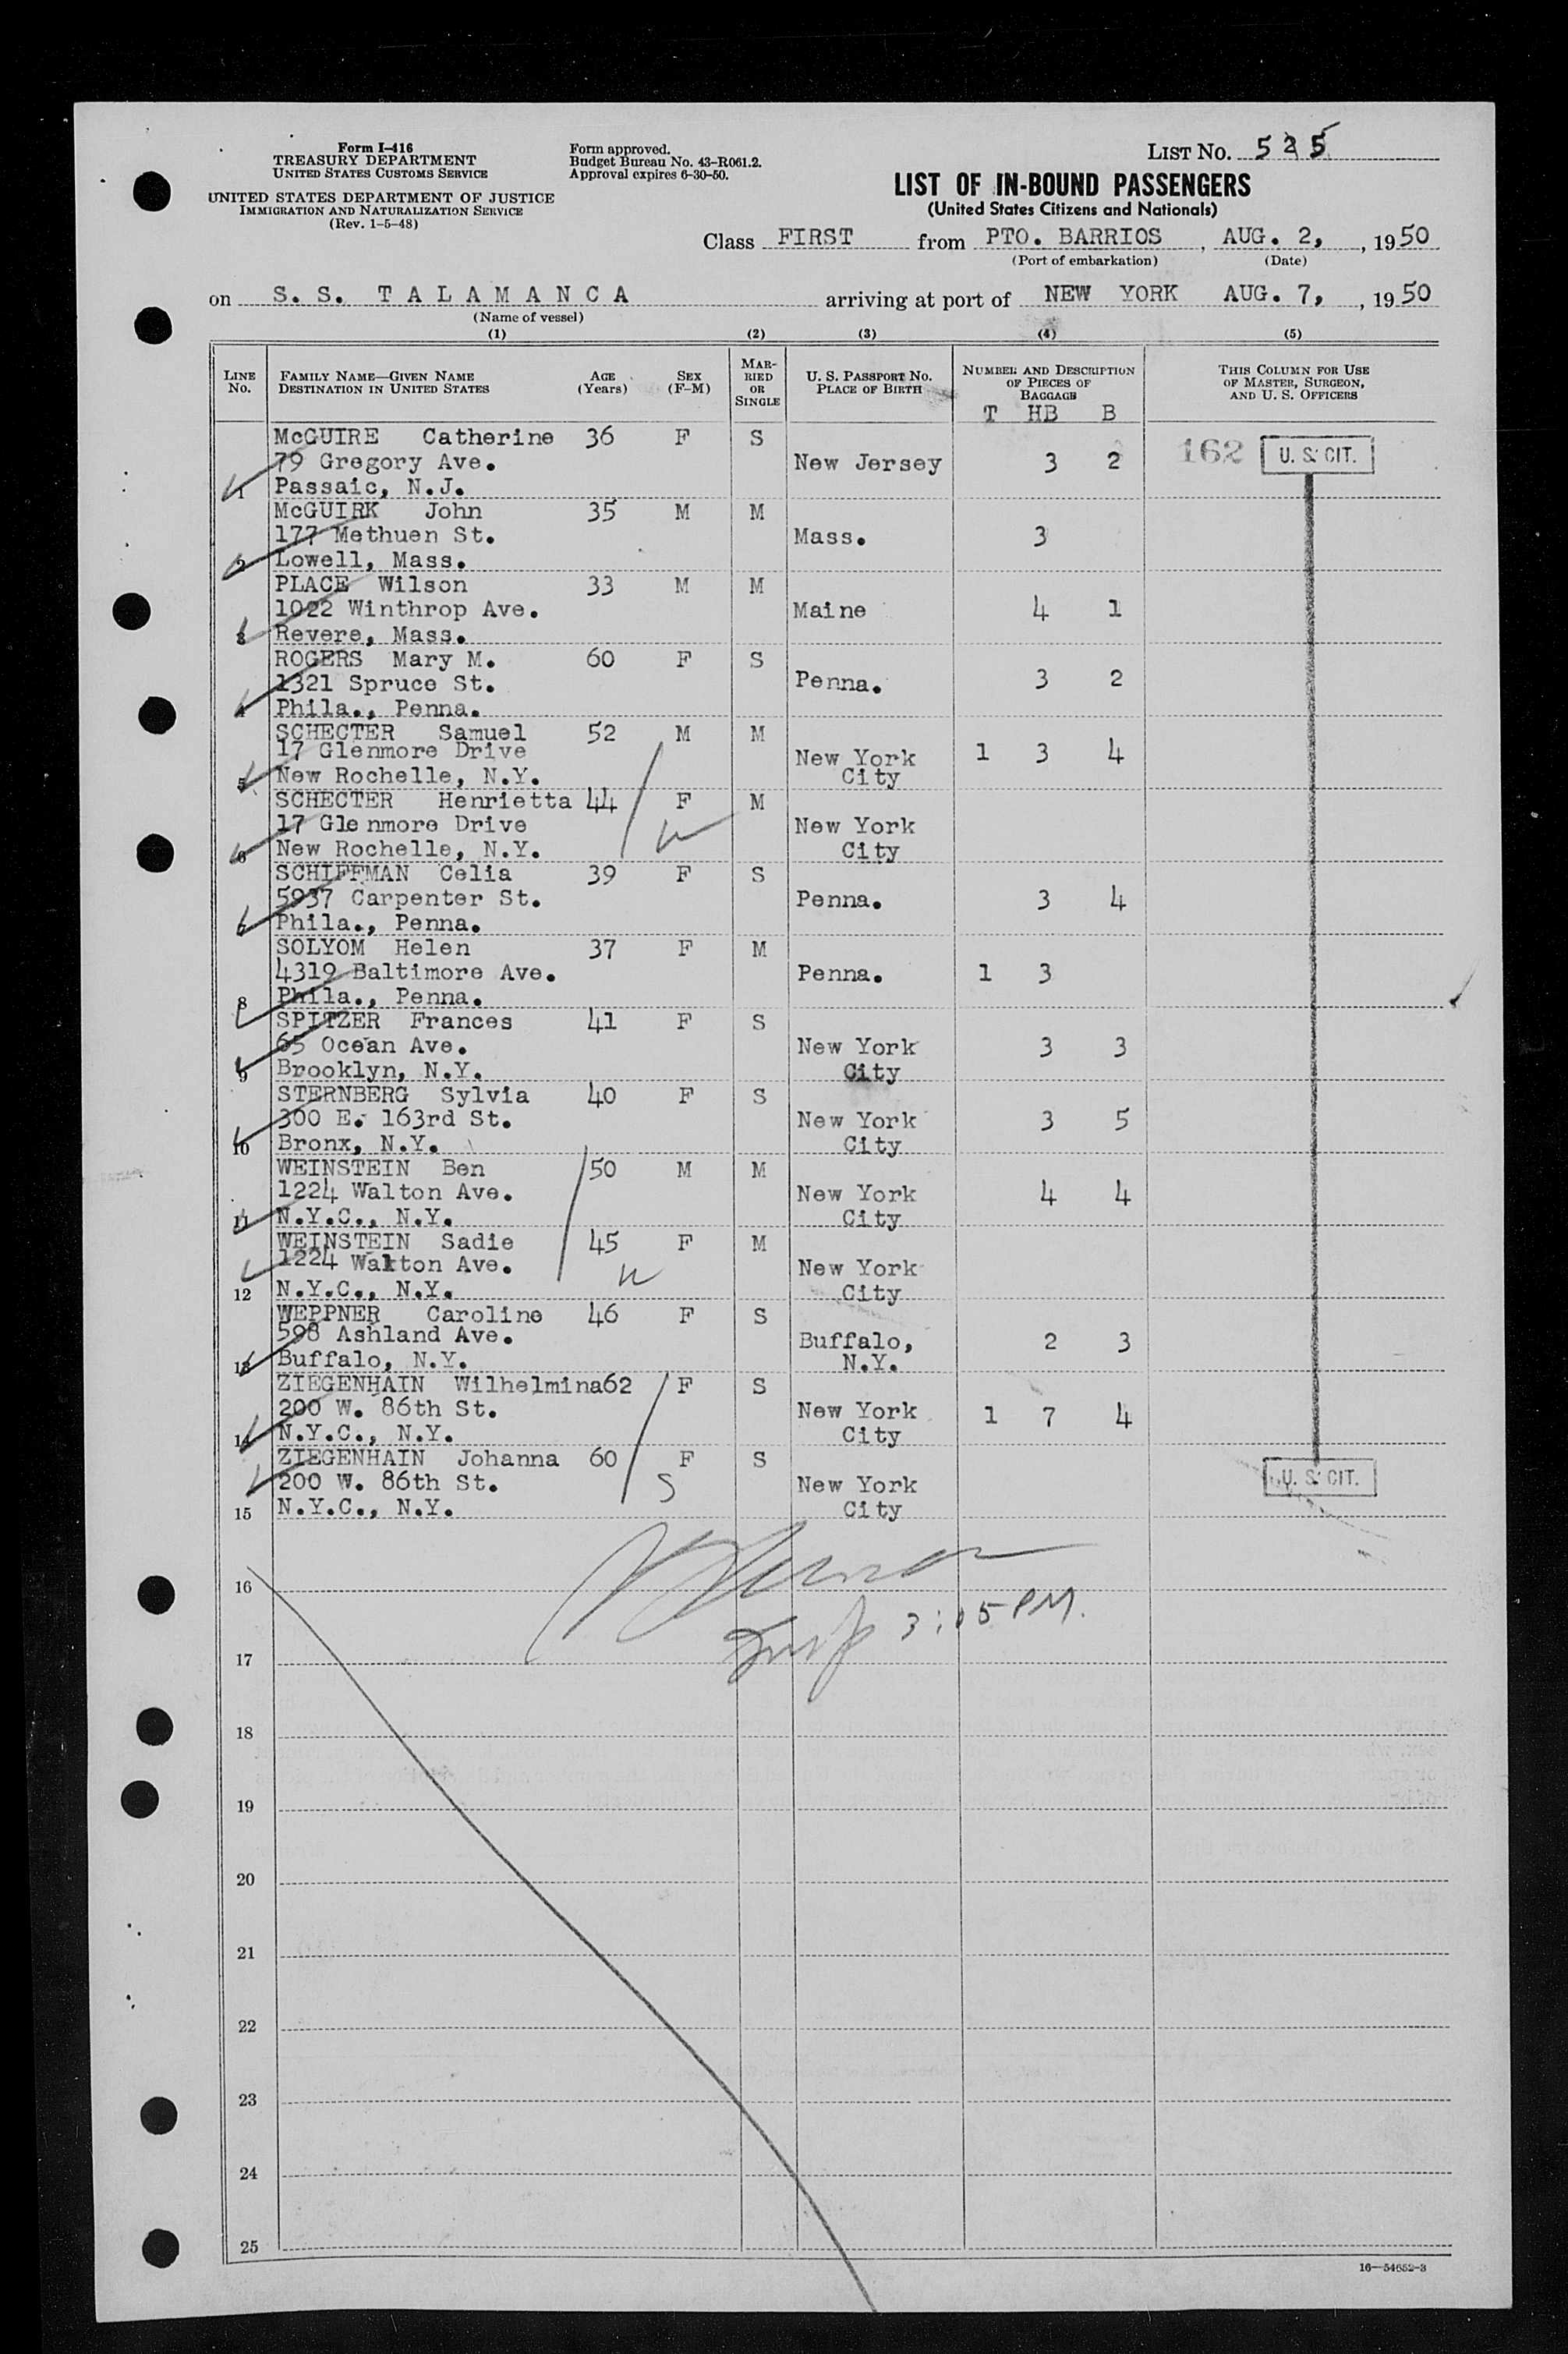 Form I-416
TREASURY DEPARTMENT
UNITED STATES CUSTOMS SERVICE
UNITED STATES DEPARTMENT OF JUSTICE
IMMIGRATION AND NATURALIZATION SERVICE
(Rev. 1-5-48)
Form approved.
Budget Bureau No. 43-R061.2.
Approval expires 6-30-50.
LIST No. 525
LIST OF IN-BOUND PASSENGERS
(United States Citizens and Nationals)
Class FIRST from PTO. BARRIOS, AUG. 2, , 1950
(Port of embarkation) (Date)
on S. S. TALAMANCA arriving at port of NEW YORK AUG. 7, , 1950
(Name of vessel)
(1) (2) (3) (4) (5)
LINE No. FAMILY NAME—GIVEN NAME DESTINATION IN UNITED STATES AGE (Years) SEX (F-M) MARRIED OR SINGLE U. S. PASSPORT No. PLACE OF BIRTH NUMBER AND DESCRIPTION OF PIECES OF BAGGAGE THIS COLUMN FOR USE OF MASTER, SURGEON, AND U. S. OFFICERS
T HB B
McGUIRE Catherine 36 F S
79 Gregory Ave. New Jersey 3 2 162 U. S. CIT.
1 Passaic, N.J.
McGUIRK John 35 M M
177 Methuen St. Mass. 3
2 Lowell, Mass.
PLACE Wilson 33 M M
1022 Winthrop Ave. Maine 4 1
3 Revere, Mass.
ROGERS Mary M. 60 F S
1321 Spruce St. Penna. 3 2
4 Phila., Penna.
SCHECTER Samuel 52 M M
17 Glenmore Drive New York 1 3 4
5 New Rochelle, N.Y. City
SCHECTER Henrietta 44 F M
17 Glenmore Drive New York
6 New Rochelle, N.Y. City
SCHIFFMAN Celia 39 F S
5937 Carpenter St. Penna. 3 4
7 Phila., Penna.
SOLYOM Helen 37 F M
4319 Baltimore Ave. Penna. 1 3
8 Phila., Penna.
SPITZER Frances 41 F S
65 Ocean Ave. New York 3 3
9 Brooklyn, N.Y. City
STERNBERG Sylvia 40 F S
300 E. 163rd St. New York 3 5
10 Bronx, N.Y. City
WEINSTEIN Ben 50 M M
1224 Walton Ave. New York 4 4
11 N.Y.C., N.Y. City
WEINSTEIN Sadie 45 F M
1224 Walton Ave. New York
12 N.Y.C., N.Y. City
WEPPNER Caroline 46 F S
598 Ashland Ave. Buffalo, 2 3
13 Buffalo, N.Y. N.Y.
ZIEGENHAIN Wilhelmina 62 F S
200 W. 86th St. New York 1 7 4
14 N.Y.C., N.Y. City
ZIEGENHAIN Johanna 60 F S U. S. CIT.
200 W. 86th St. S New York
15 N.Y.C., N.Y. City
16
3:05 PM.
17
18
19
20
21
22
23
24
25
16—54652-3